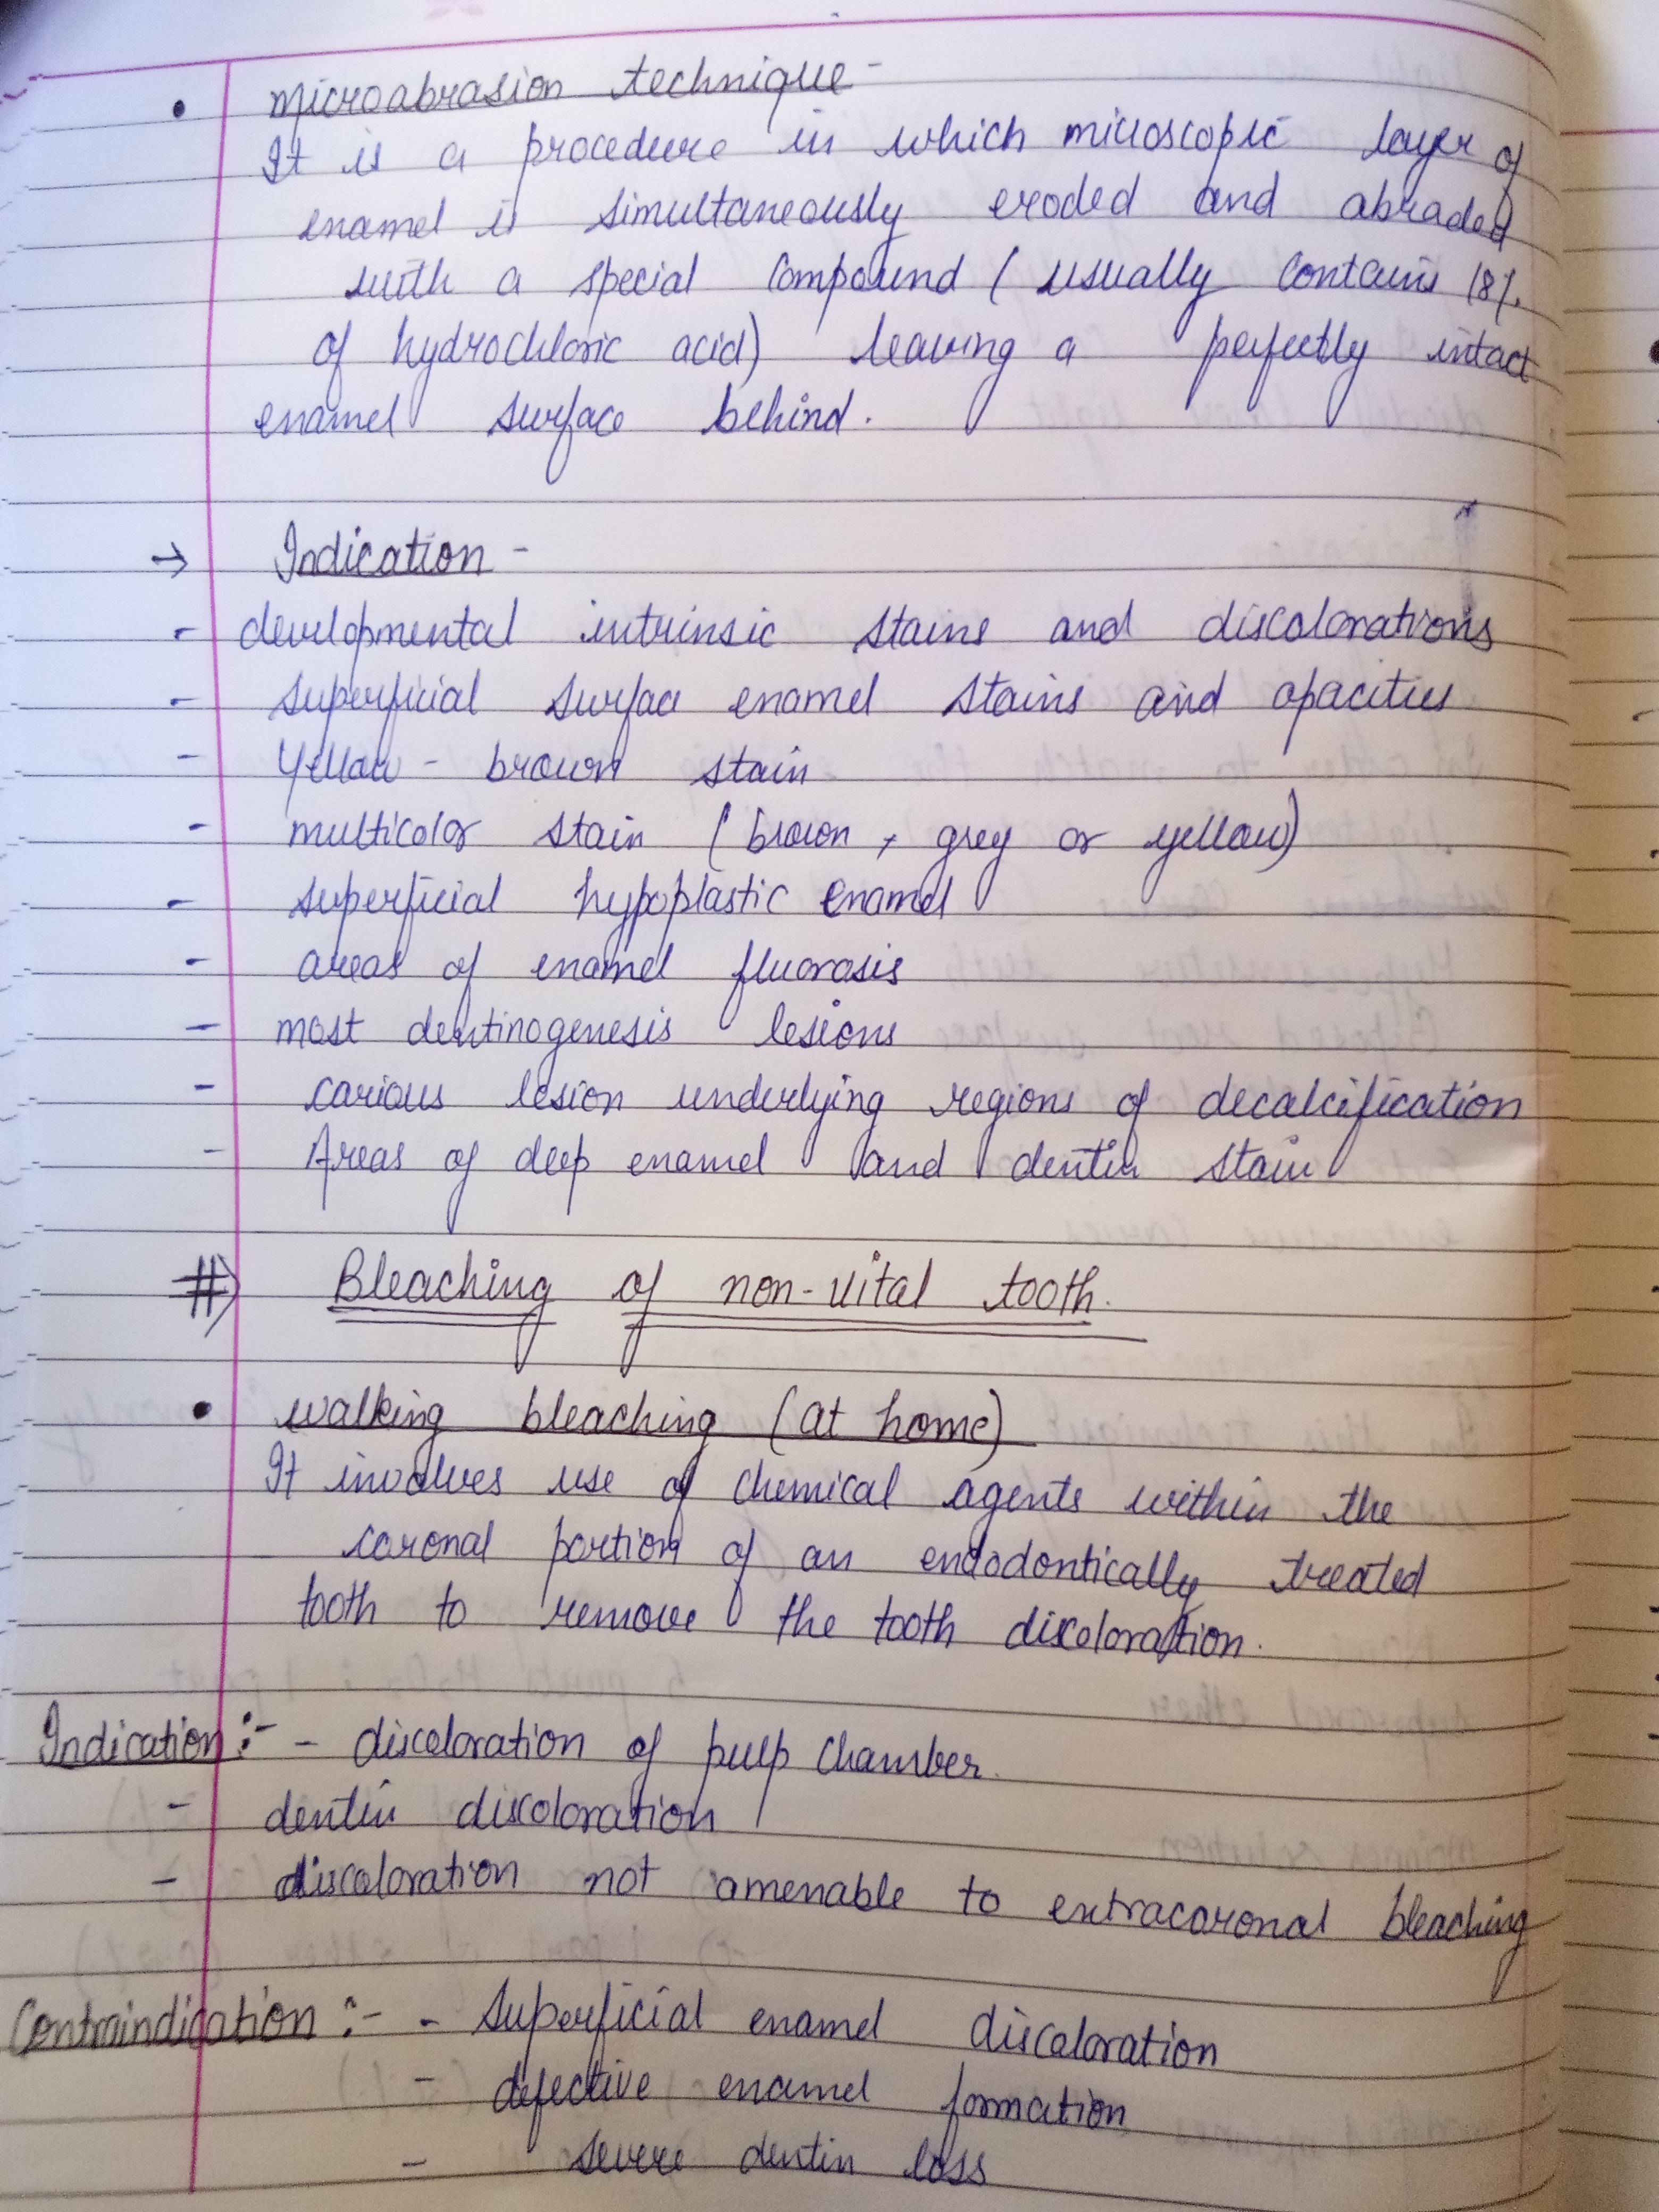 • Microabrasion technique -
It is a procedure in which microscopic layer of
enamel is simultaneously eroded and abraded
with a special compound ( usually contains 18%
of hydrochloric acid) leaving a perfectly intact
enamel surface behind.
→ Indication -
- developmental intrinsic stains and discolorations
- superficial surface enamel stains and opacities
- Yellow - brown stain
- multicolor stain ( brown, grey or yellow)
- superficial hypoplastic enamel
- areas of enamel fluorosis
- most dentinogenesis lesions
- carious lesion underlying regions of decalcification
- Areas of deep enamel and dentin stain
#⇒ Bleaching of non-vital tooth.
• walking bleaching (at home)
It involves use of chemical agents within the
coronal portion of an endodontically treated
tooth to remove the tooth discoloration.
Indication :- - discoloration of pulp chamber.
- dentin discoloration
- discoloration not amenable to extracoronal bleaching
Contraindication :- - superficial enamel discoloration
- defective enamel formation
- severe dentin loss